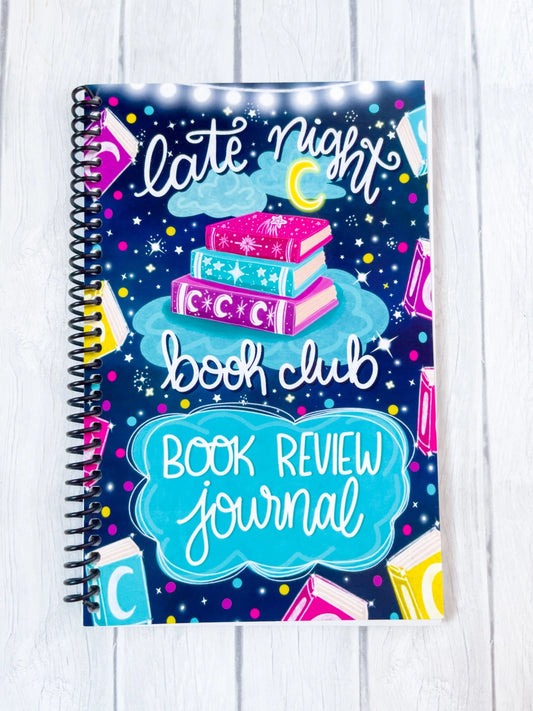 late night
book club
BOOK REVIEW
journal